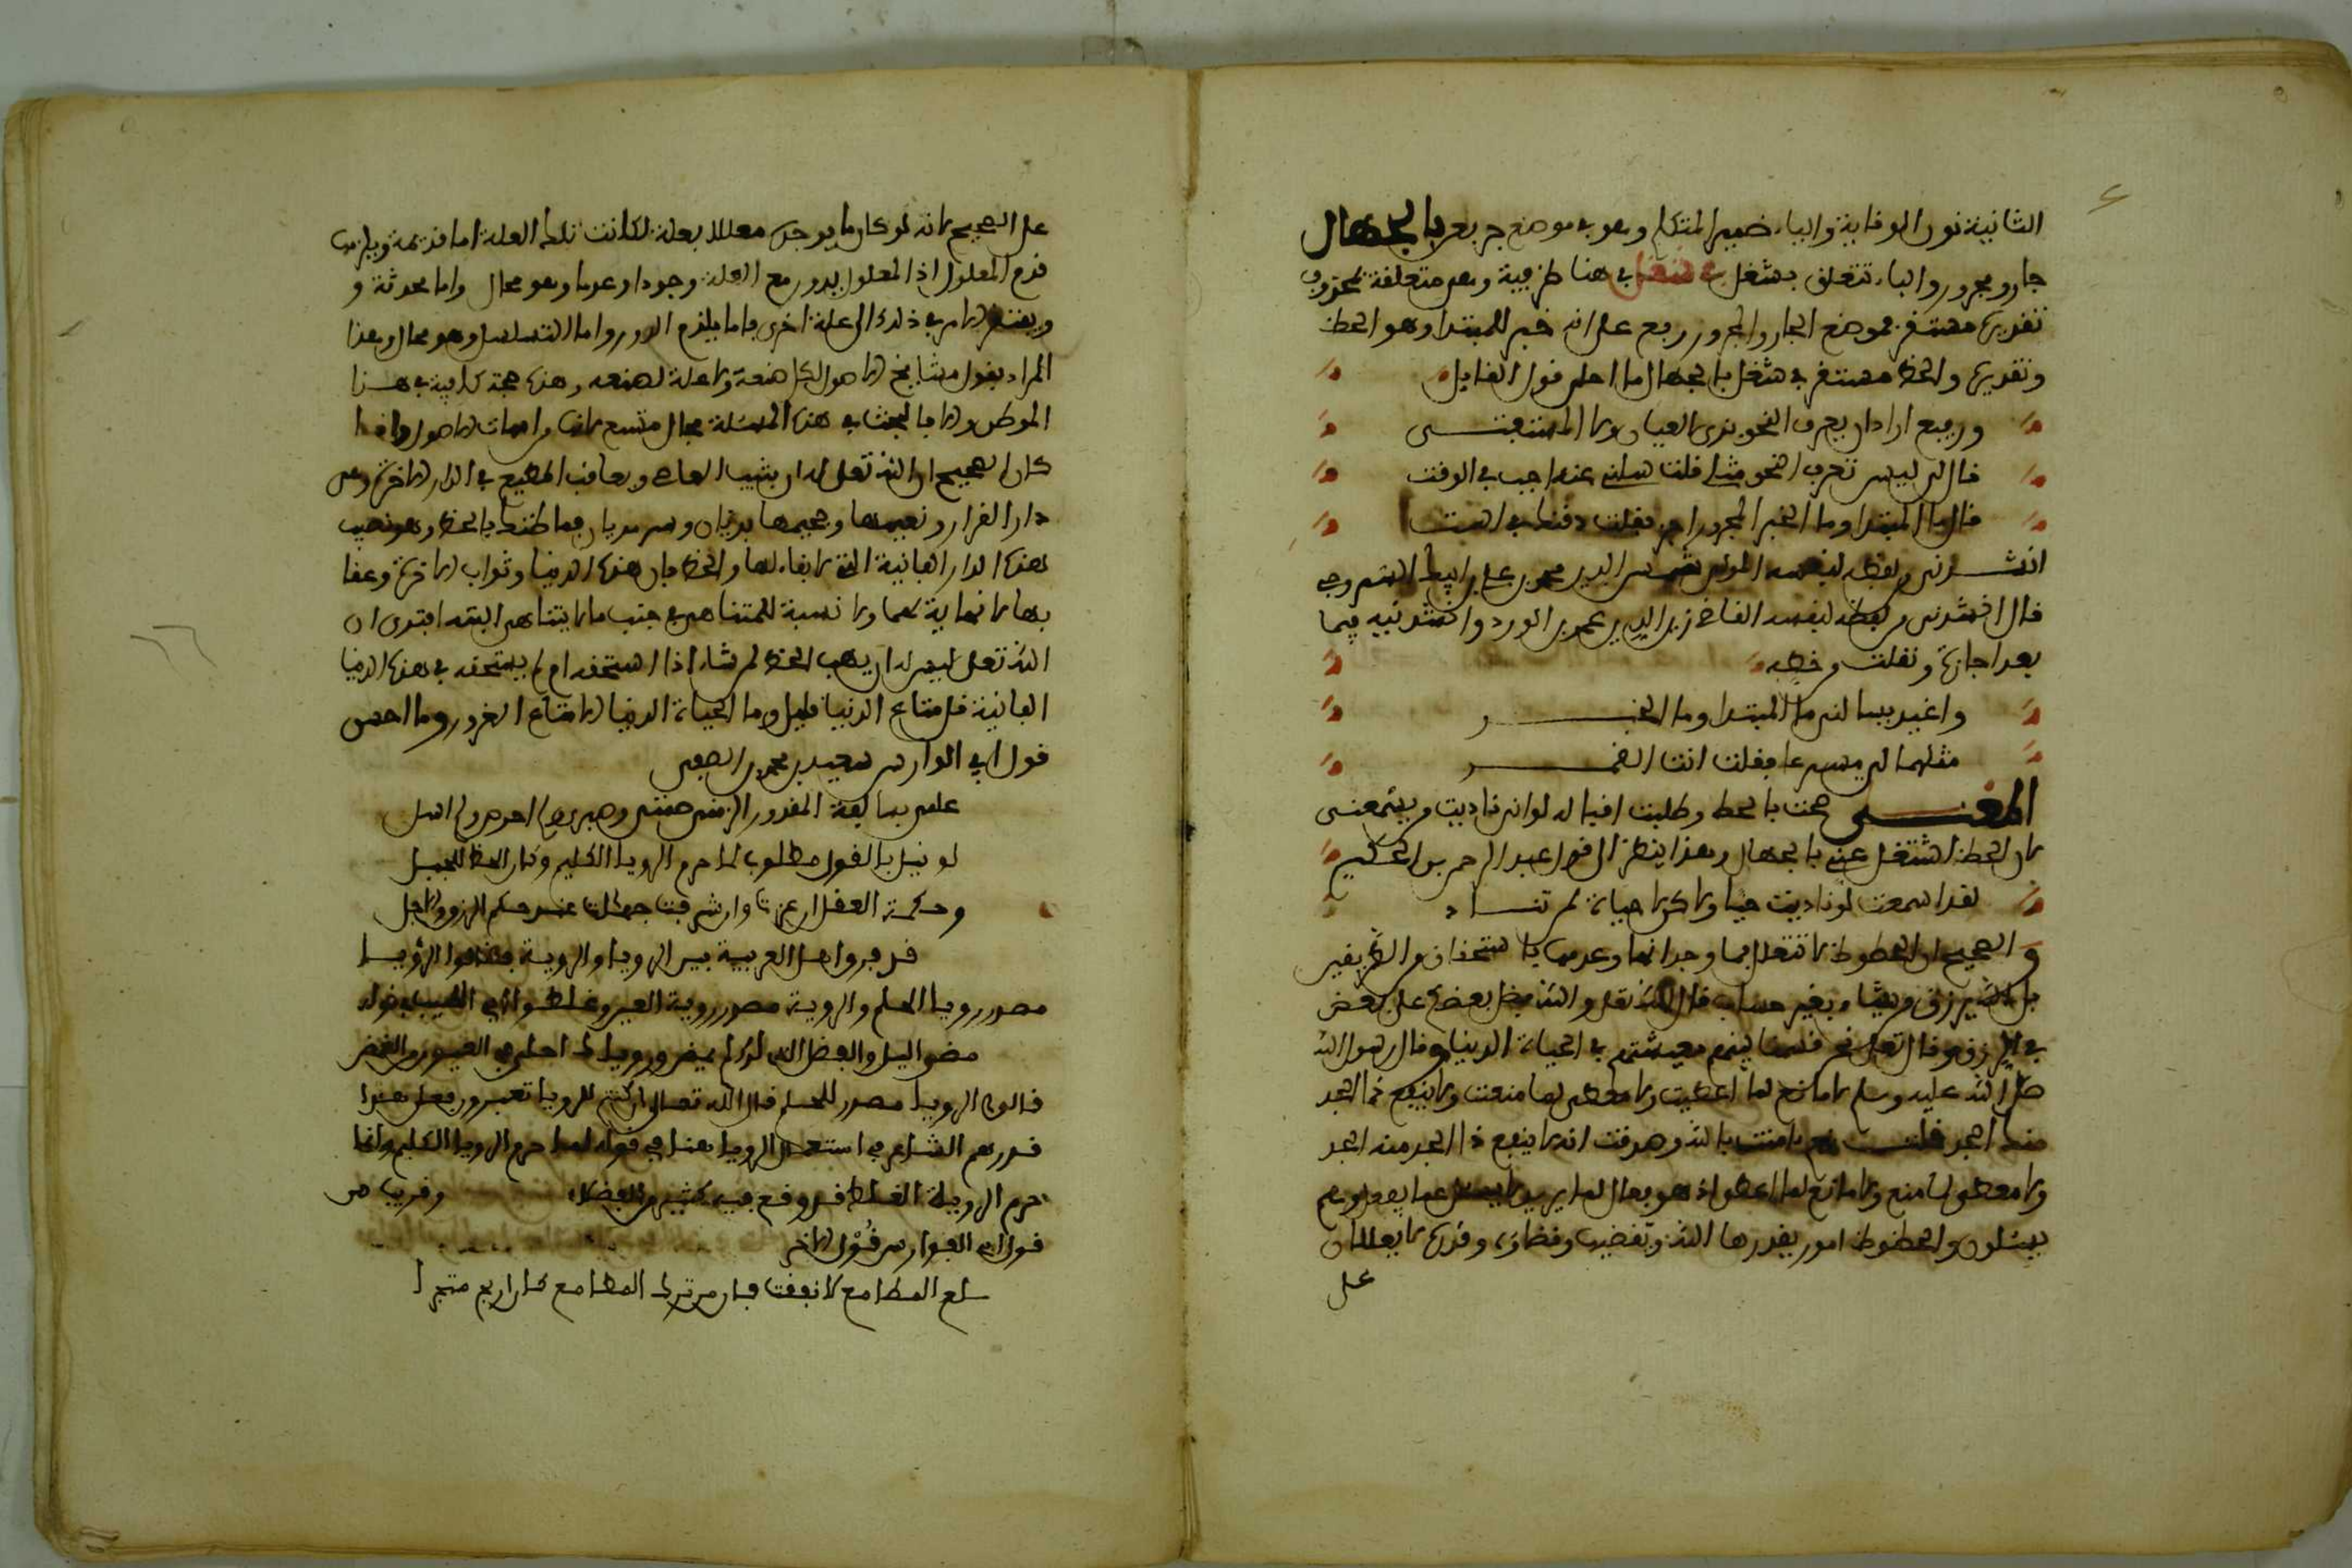 الثانية نون الوقاية والياء ضمير المتكلم وهو في موضع جر بعن بالجهال
جار ومجرور والباء تتعلق بشغل في شغل في هنا ظرفية وهي متعلقة بمحذوف
تقديره مستقر فموضع الجار والمجرور رفع على انه خبر للمبتدا وهو الحظ
وتقديره والحظ مستقر في شغل بالجهال ما احلى قول القايل
ورفيع اراد ان يعرف النحو بزي العيان لا المستفتى
قال لي ليس تعرف النحو مثلي قلت سلني عنه اجب في الوقت
قال ما المبتدا وما الخبر المجرور اخبر فقلت ذقنك في است
انشدني من لفظه لنفسه المولى شمس الدين محمد بن علي بن ايبك السروجي
قال انشدني من لفظه لنفسه القاضي زين الدين عمر بن الوردي وانشدنيه فيما
بعد اجازة ونقلت من خطه
واغيد يسالني ما المبتدا وما الخبر
مثلهما لي مسرعا فقلت انت القمر
المعنى صحت بالحظ وطلبت اقباله لو اني ناديت من يسمعني
لان الحظ اشتغل عني بالجهال وهذا ينظر الى قول عبد الرحمن بن الحكم
لقد اسمعت لو ناديت حيا ولاكن لا حياة لمن تنادي
والصحيح ان الحظوظ لا تتعلل فيها وجدانها وعدمها باستحقاق من الفريقين
بل الله يرزق من يشاء بغير حساب قال الله تعلى والله فضل بعضكم على بعض
في الرزق وقال تعلى نحن قسمنا بينهم معيشتهم في الحياة الدنيا وقال رسول الله
صلى الله عليه وسلم لا مانع لما اعطيت ولا معطي لما منعت ولا ينفع ذا الجد
منك الجد فلست بالله وعرفت انه لا ينفع ذا الجد منه الجد
ولا معطي لما منع ولا مانع لما اعطى اذ هو فعال لما يريد لا يسئل عما يفعل وهم
يسئلون والحظوظ امور يقدرها الله وتقضيه وقضاؤه وقدره لا يعللان
على
على الصحيح لانه لو كان ما يوجده معللا بعلة لكانت تلك العلة اما قديمة ويلزم
قدم المعلول اذ المعلول يدور مع العلة وجودا وعدما وهو محال واما محدثة و
ويفتقر الامر في ذلك الى علة اخرى فاما يلزم الدور واما التسلسل وهو محال وهذا
المراد بقول مشايخ الاصول لكل صنعة ولا علة لصنعه وهذه حجة كافية في هذا
الموطن والا فالبحث في هذه المسئلة مجال متسع لانها من امهات الاصول واذا
كان الصحيح ان الله تعلى له ان يثيب العاصي ويعاقب المطيع في الدار الاخرة وهي
دار القرار ونعيمها وجحيمها بدنيان وسرمديان فما ظنك بالحظ وهو نصيب
هذه الدار الفانية التي لا بقاء لها ولا لحظ فان هذه الدنيا وثواب الاخرة وعقا
بها لا نهاية لهما ولا نسبة للمتناهي في جنب ما لا يتناهى البتة افترى ان
الله تعلى ليس له ان يهب الحظ لمن شاء اذا استحقه ام لم يستحقه في هذه الدنيا
الفانية قل متاع الدنيا قليل وما الحياة الدنيا الا متاع الغرور وما احسن
قول ابي الفوارس سعيد بن محمد الصيفي
علمي بسابقة المقدور الزمني صمتي وصبري ولم احرص ولم اسل
لو نيل بالقول مطلوب لما حرم الرويا الكليم وكان الحظ للجبل
وحكمة العقل ان عزت وان شرفت جهالة عند حكم الرزق والاجل
قد فرق اهل العربية بين الرويا والروية فقالوا الرؤيا
مصدر رويا الحلم والروية مصدر روية العين وغلطوا ابي الطيب في قوله
مضى الليل والفضل الذي لك لا يمضي ورؤياك احلى في العيون من الغمض
قالوا الرويا مصدر للحلم قال الله تعالى ان كنتم للرويا تعبرون فعلى هذا
قد وهم الشاعر في استعمال الرويا هنا في قوله لما حرم الرويا الكليم وانما
حرم الروية الغلط قد وقع فيه كثير من الفضلاء وقريب من
قول ابي الفوارس قول الاخر
سلع المطامع لا نفقت فان من ترك المطامع كان اربح متجرا